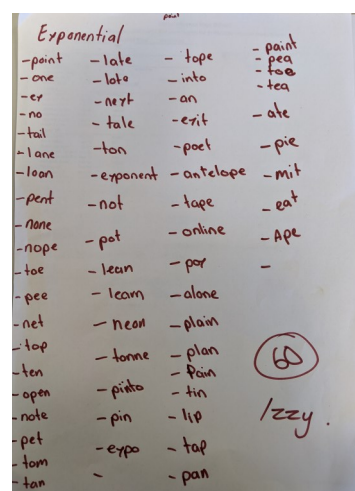 paint
Exponential
-point
-one
-ex
-no
-tail
-lane
-loan
-pent
-none
-nope
-toe
-pee
-net
-top
-ten
-open
-note
-pet
-tom
-tan
-late
-lote
-next
-tale
-ton
-exponent
-not
-pot
-lean
-learn
-neon
-tonne
-pinto
-pin
-expo
-
-tope
-into
-an
-exit
-poet
-antelope
-tape
-online
-pox
-alone
-plain
-plan
-Pain
-tin
-lip
-tap
-pan
-paint
-pea
-toe
-tea
-ate
-pie
-mit
-eat
-Ape
-
60
Izzy.